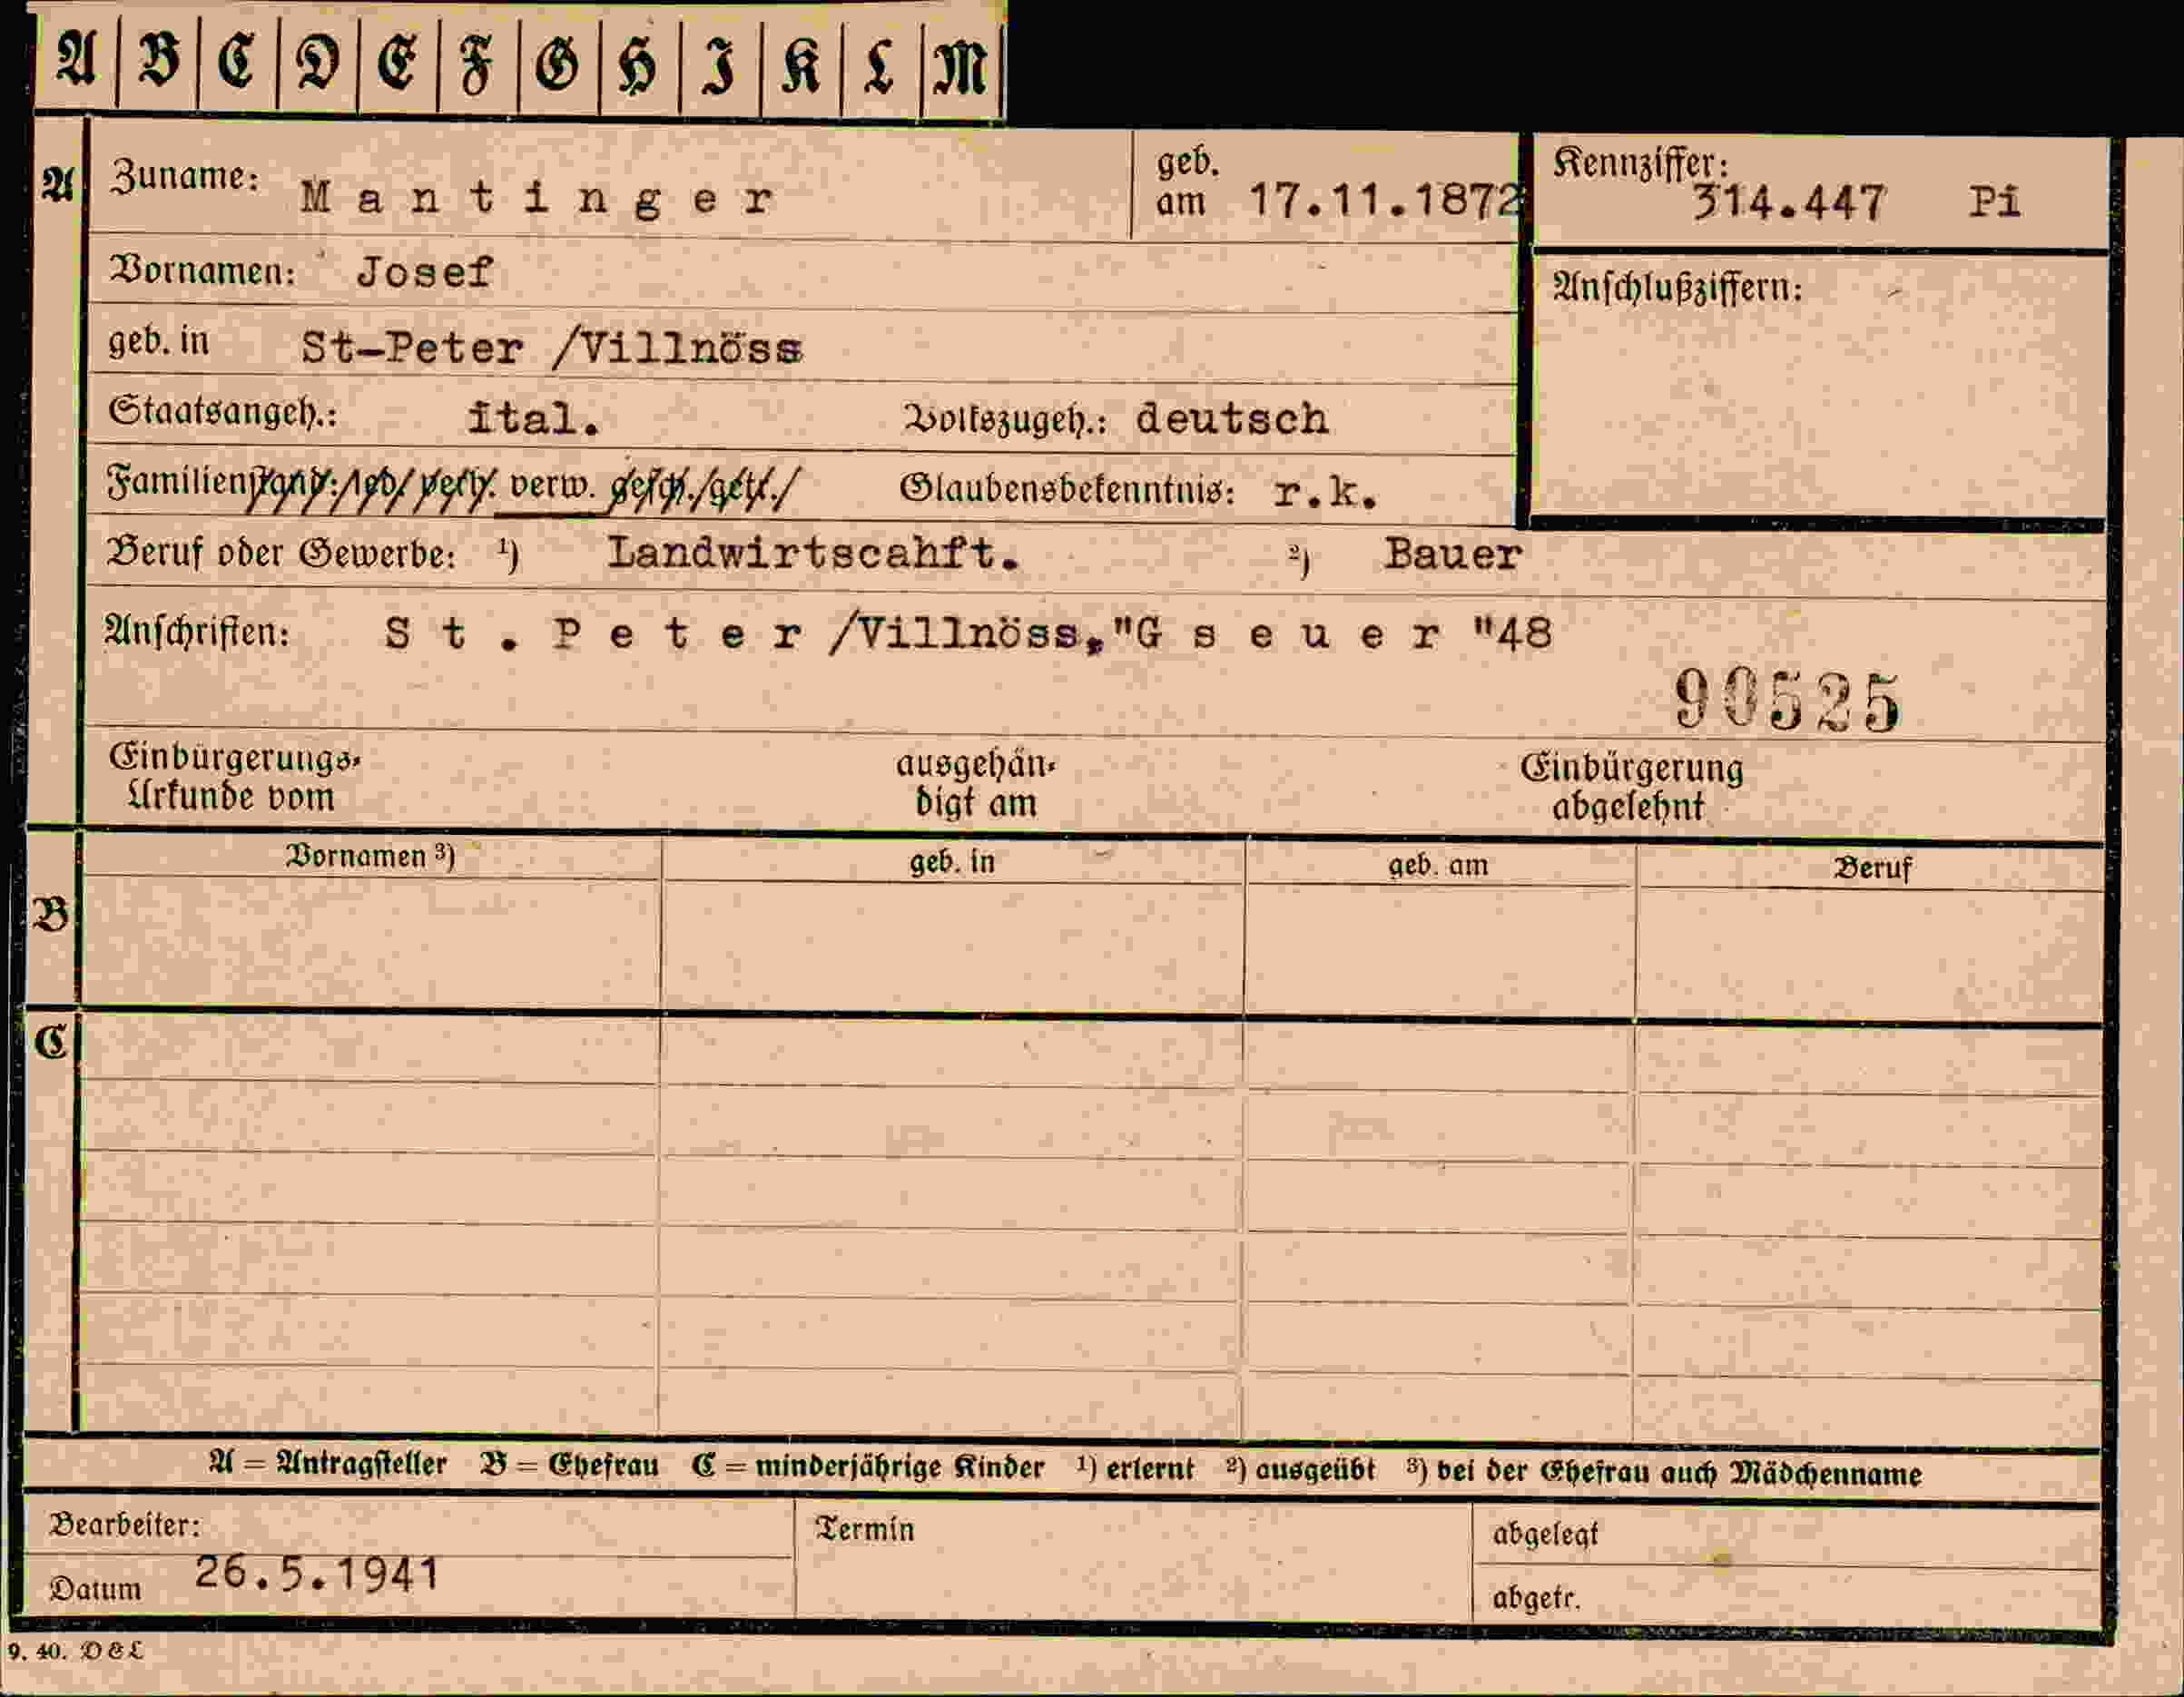 A B C D E F G H I K L M
A Zuname: Mantinger geb. am 17.11.1872 Kennziffer: 314.447 Pi
Vornamen: Josef Anschlußziffern:
geb. in St-Peter /Villnöss
Staatsangeh.: ital. Volkszugeh.: deutsch
Familienstand: led. verh. verw. gesch./getr./ Glaubensbekenntnis: r.k.
Beruf oder Gewerbe: ¹) Landwirtscahft. ²) Bauer
Anschriften: St. Peter /Villnöss,"Gseuer "48
90525
Einbürgerungs- ausgehän- Einbürgerung
Urkunde vom digt am abgelehnt
Vornamen ³) geb. in geb. am Beruf
B
C
A = Antragsteller B = Ehefrau C = minderjährige Kinder ¹) erlernt ²) ausgeübt ³) bei der Ehefrau auch Mädchenname
Bearbeiter: Termin abgelegt
Datum 26.5.1941 abgetr.
9. 40. D&L